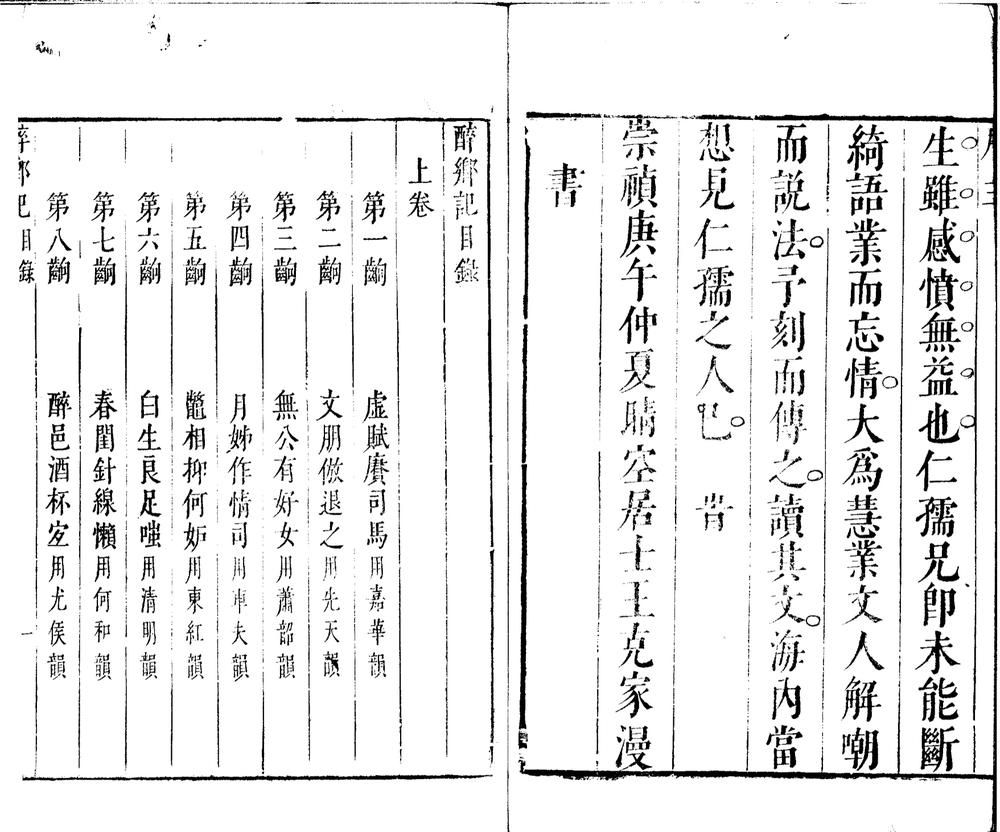 序三
生雖感憤無益也仁孺兄卽未能斷
綺語業而忘情大爲慧業文人解嘲
而説法予刻而傳之讀其文海內當
想見仁孺之人巳　　旹
崇禎庚午仲夏晴空居士王克家漫
書
醉鄉記目錄
上卷
第一齣　虛賦賡司馬用嘉華韻
第二齣　文朋倣退之用先天韻
第三齣　無公有好女用蕭韶韻
第四齣　月姊作情司用車夫韻
第五齣　鼈相抑何妒用東紅韻
第六齣　白生良足嗤用清明韻
第七齣　春閨針線懶用何和韻
第八齣　醉邑酒杯寬用尤侯韻
醉鄉記目錄　一